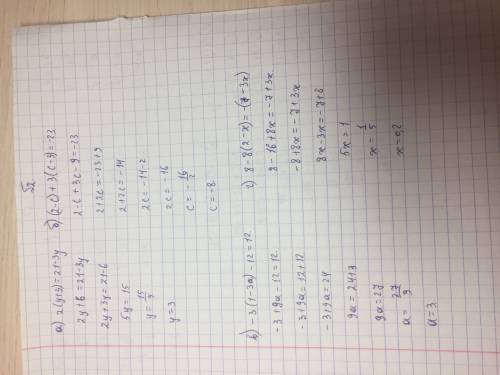 52
а) 2(y+3)=21-3y
2y+6=21-3y
2y+3y=21-6
5y=15
y=15/5
y=3
б) (2-c)+3(c-3)=-23
2-c+3c-9=-23
2+2c=-23+9
2+2c=-14
2c=-14-2
2c=-16
c=-16/2
c=-8.
в) -3(1-3a)-12=12
-3+9a-12=12
-3+9a=12+12
-3+9a=24
9a=24+3
9a=27
a=27/9
a=3
г) 8-8(2-x)=-(7-3x)
8-16+8x=-7+3x
-8+8x=-7+3x
8x-3x=-7+8
5x=1
x=1/5
x=0,2